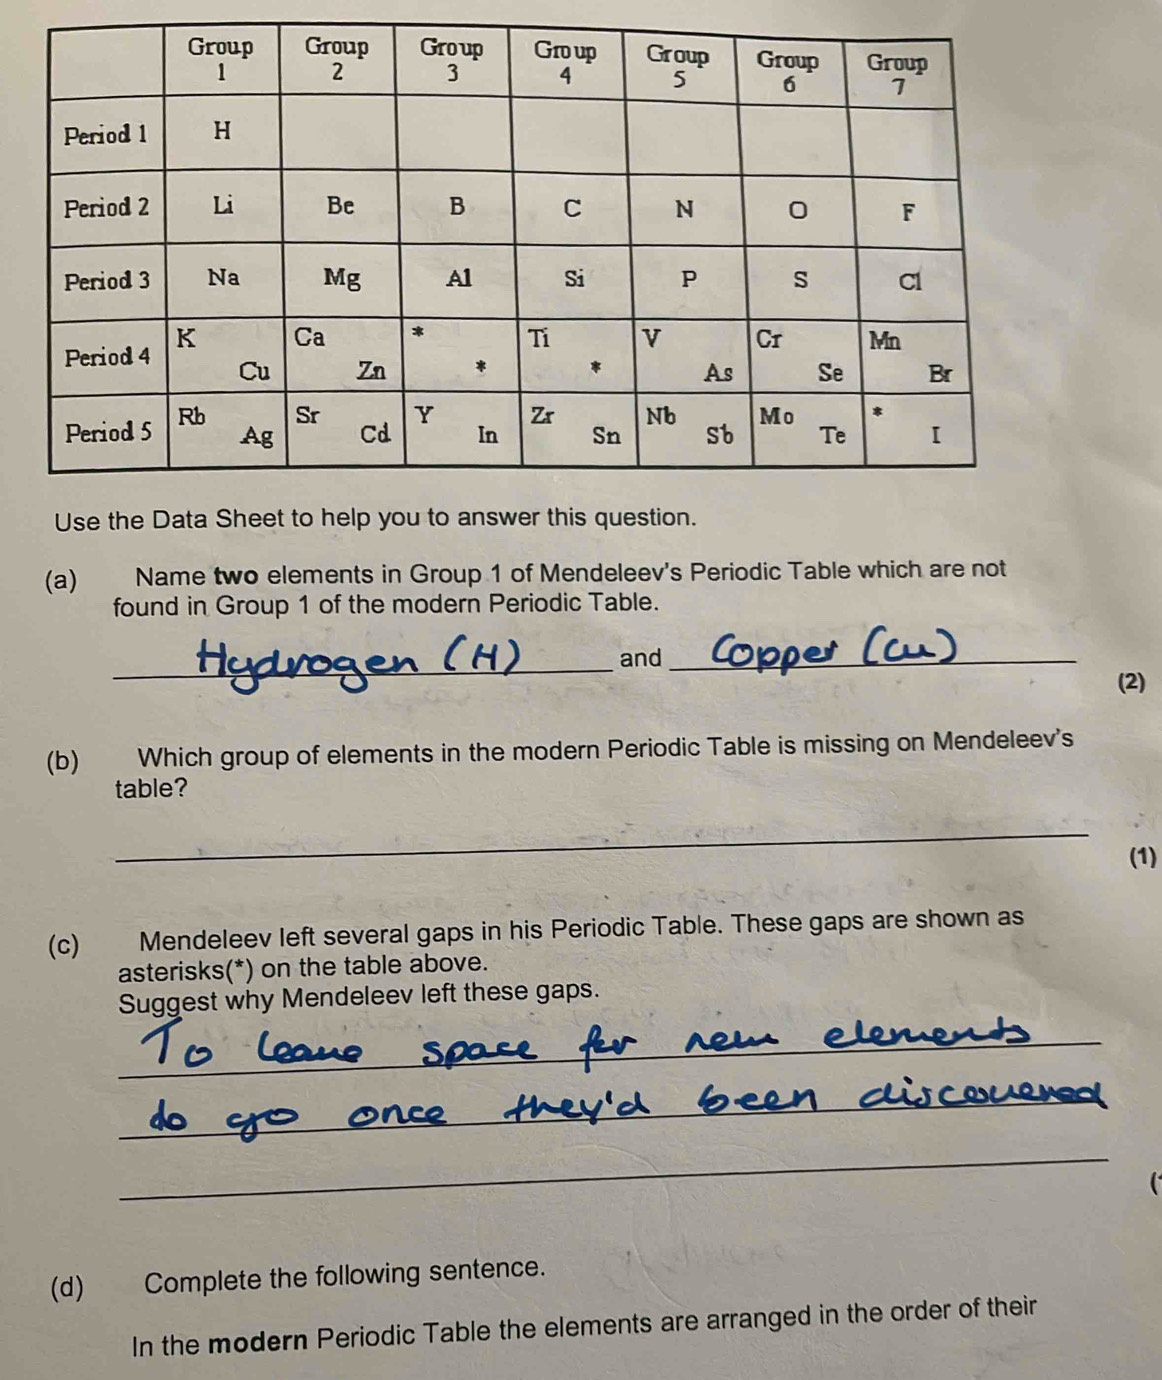 Group 1 Group 2 Group 3 Group 4 Group 5 Group 6 Group 7
Period 1 H
Period 2 Li Be B C N O F
Period 3 Na Mg Al Si P S Cl
Period 4 K Cu Ca Zn * * Ti * V As Cr Se Mn Br
Period 5 Rb Ag Sr Cd Y In Zr Sn Nb Sb Mo Te * I
Use the Data Sheet to help you to answer this question.
(a) Name two elements in Group 1 of Mendeleev's Periodic Table which are not
found in Group 1 of the modern Periodic Table.
Hydrogen (H) and Copper (Cu)
(2)
(b) Which group of elements in the modern Periodic Table is missing on Mendeleev's
table?
(1)
(c) Mendeleev left several gaps in his Periodic Table. These gaps are shown as
asterisks(*) on the table above.
Suggest why Mendeleev left these gaps.
To leave space for new elements
do go once they'd been discovered
(d) Complete the following sentence.
In the modern Periodic Table the elements are arranged in the order of their